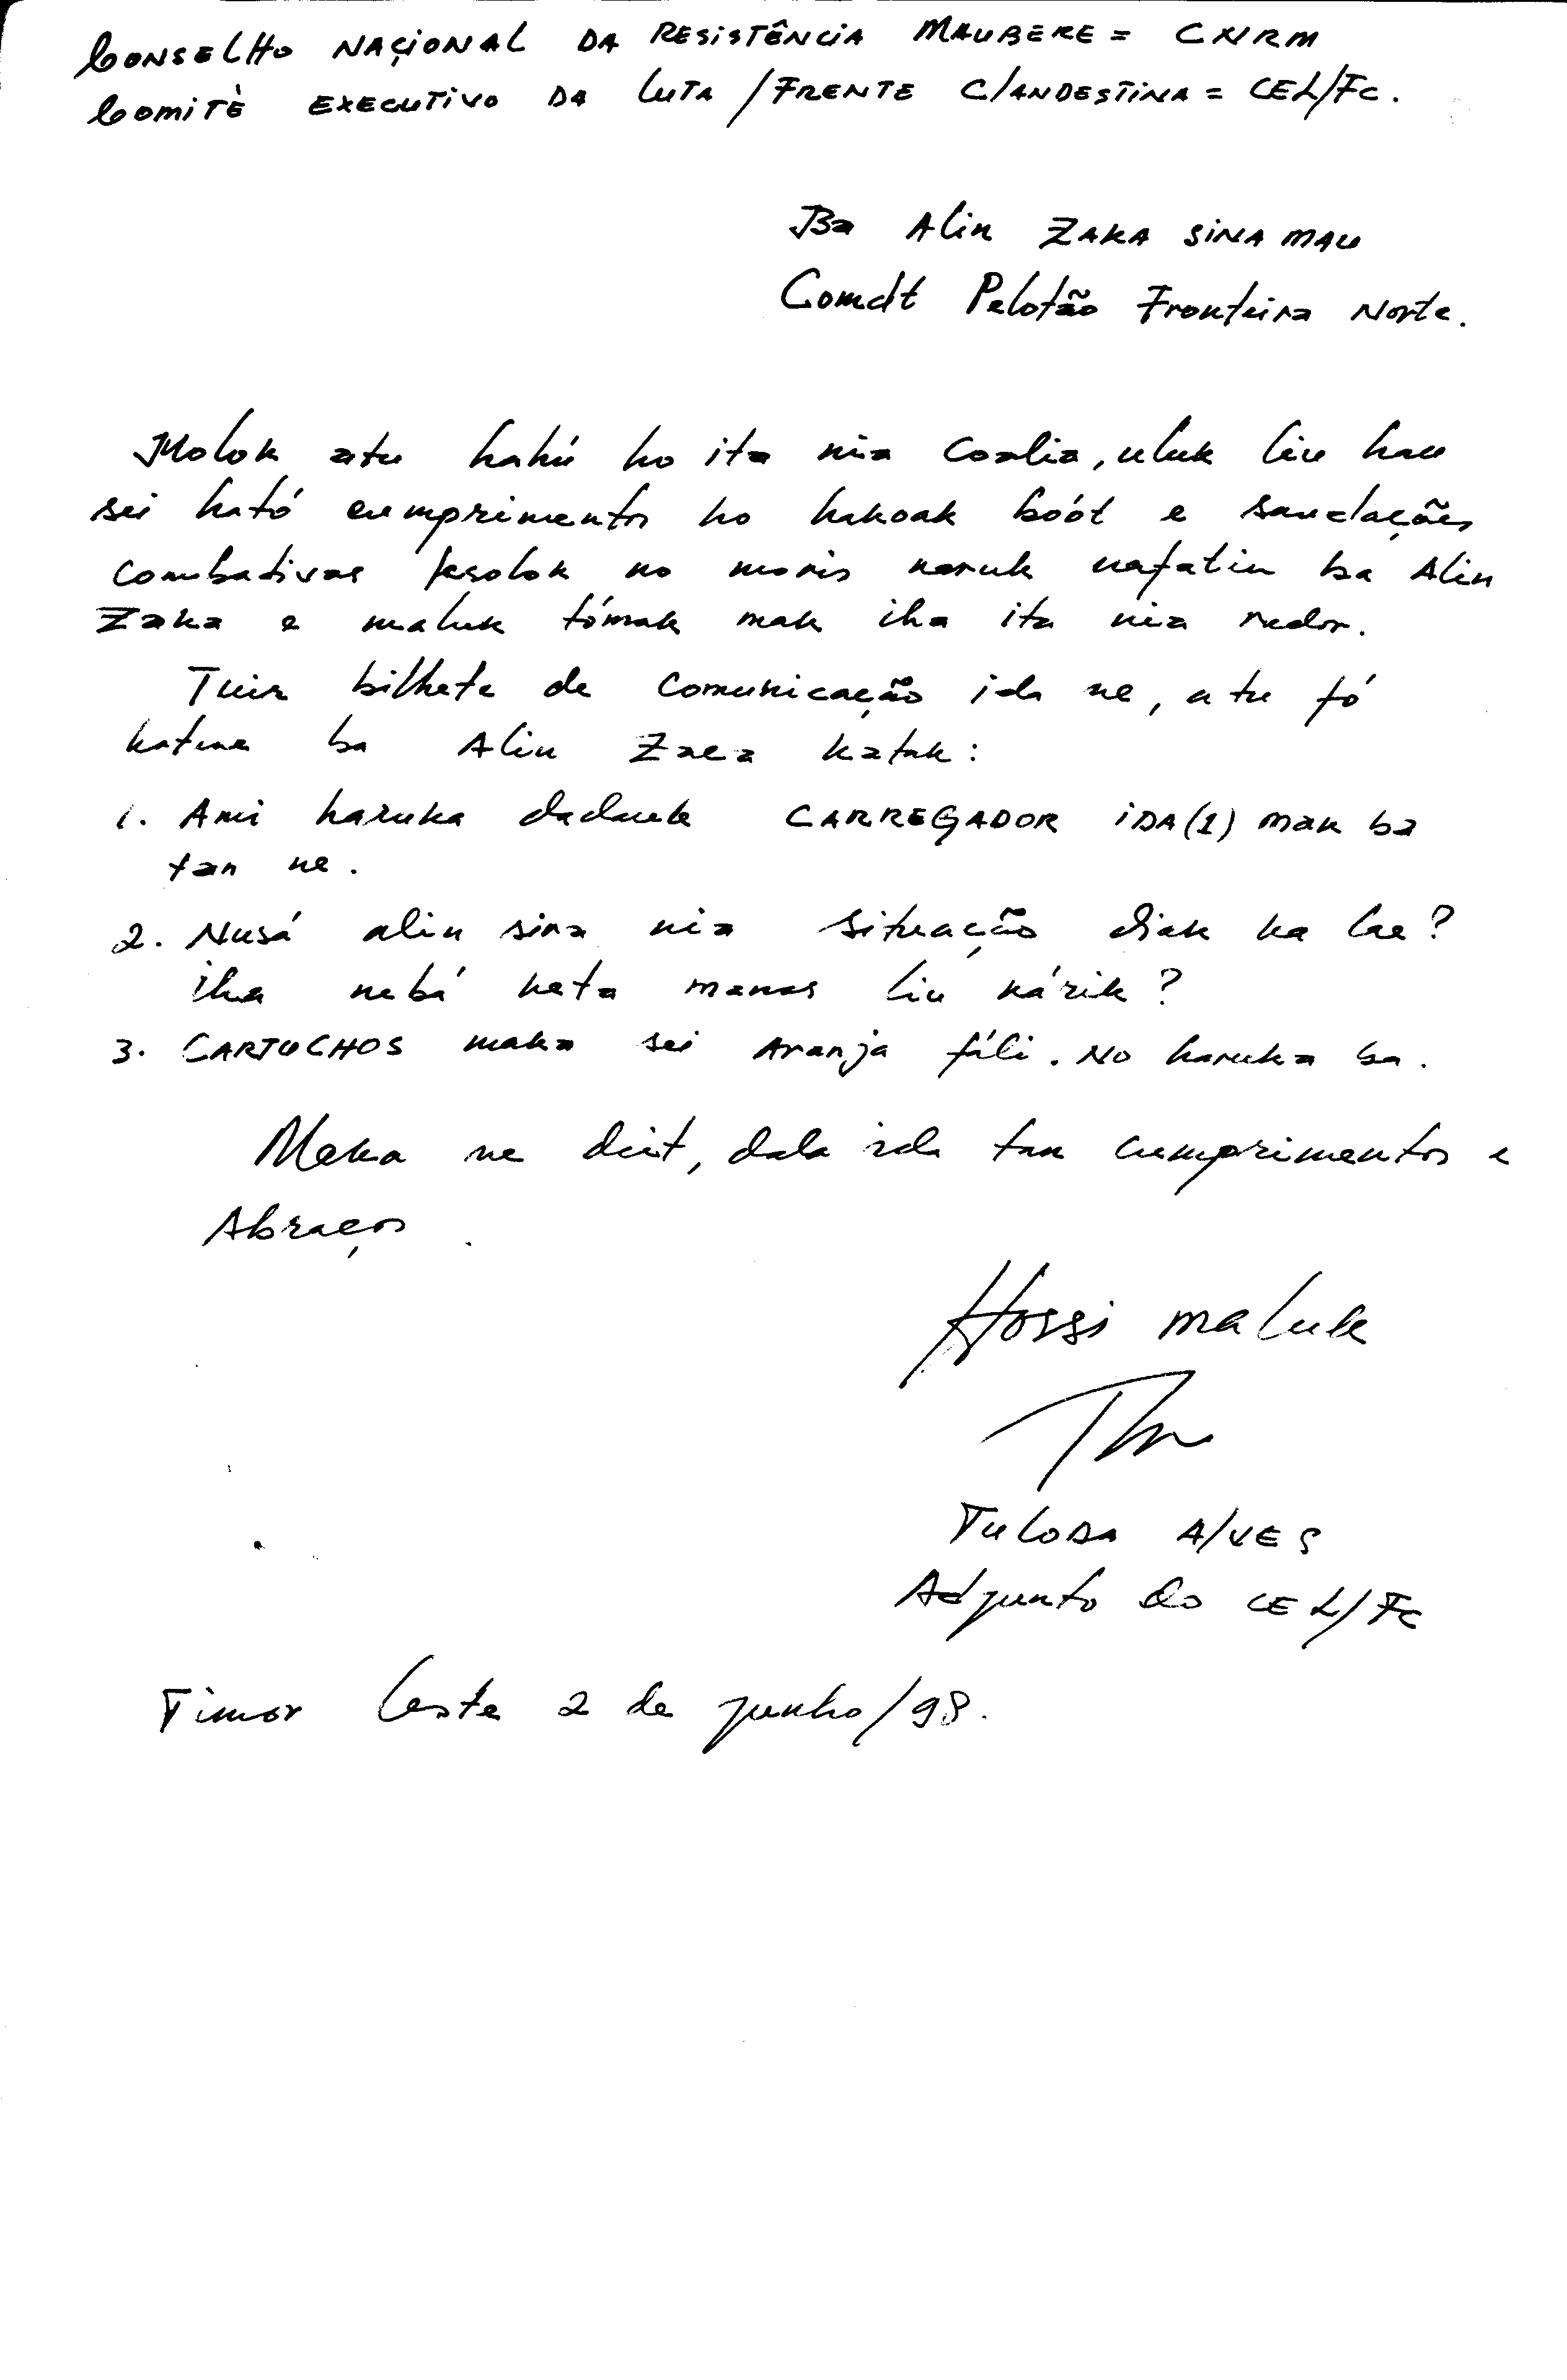 CONSELHO NAÇIONAL DA RESISTÊNCIA MAUBERE = CNRM
COMITÈ EXECUTIVO DA LUTA / FRENTE CLANDESTINA = CEL/FC.
Ba Alin ZAKA SINA MAU
Comdt Pelotão Fronteira Norte.
Molok atu hahú ho ita nia Coalia, uluk liu hau
sei ható cumprimentos ho hakoak bóót e saudações
Combativas ksolok no moris naruk nafatin ba Alin
Zaka e maluk tómak mak iha ita nia redor.
Tuir bilhete de Comunicação ida ne, atu fó
hatene ba Alin Zaca katak:
1. Ami haruka dadauk CARREGADOR IDA (1) mak ba
tan ne.
2. Nusá alin sira nia situação diak ka lae?
iha nebá keta manas liu kárik?
3. CARTUCHOS maka sei Aranja fáli. No haruka ba.
Maka ne deit, dala ida tan cumprimentos e
Abraços.
Hossi maluk
TULODA ALVES
Adjunto do CEL/FC
Timor Leste 2 de junho/98.